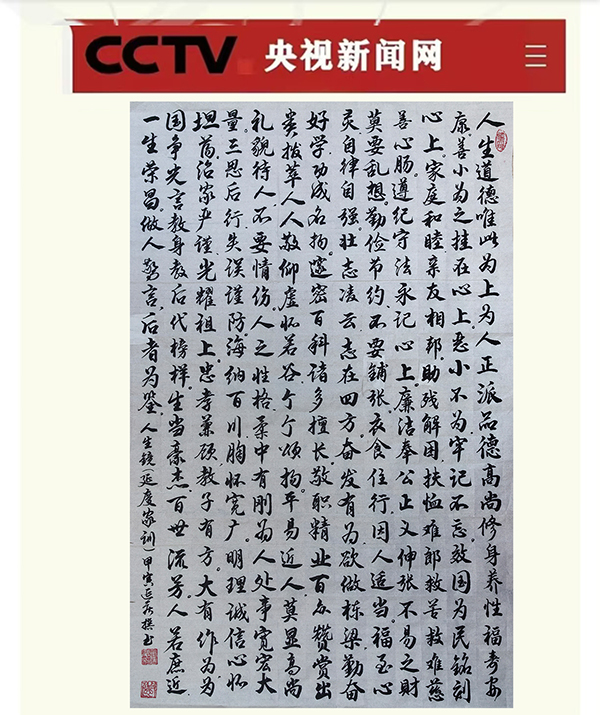 CCTV 央视新闻网
人生道德唯此为上为人正派品德高尚修身养性福寿安
康。善小为之挂在心上。恶小不为牢记不忘。效国为民铭刻
心上。家庭和睦亲友相邦。助残解困扶恤难郎救苦救难慈
善心肠。遵纪守法永记心上。廉洁奉公正义伸张不易之财
莫要乱想。勤俭节约不要铺张。衣食住行因人适当。福至心
灵自律自强。壮志凌云志在四方。奋发有为欲做栋梁。勤奋
好学功成名扬。邃密百科诸多擅长敬职精业百众赞赏出
类拔萃人人敬仰。虚怀若谷个个颂扬。平易近人莫显高尚
礼貌待人不要情伤。人之性格柔中有刚。为人处事宽宏大
量。三思后行失误谨防。海纳百川胸怀宽广。明理诚信心怀
坦荡。治家严谨光耀祖上。忠孝兼顾教子有方。大有作为为
国争光。言教身教后代榜样。生当豪杰百世流芳。人若庶近
一生荣昌。做人警言。后者为鉴。人生镜(延庆家训)甲寅延撰书